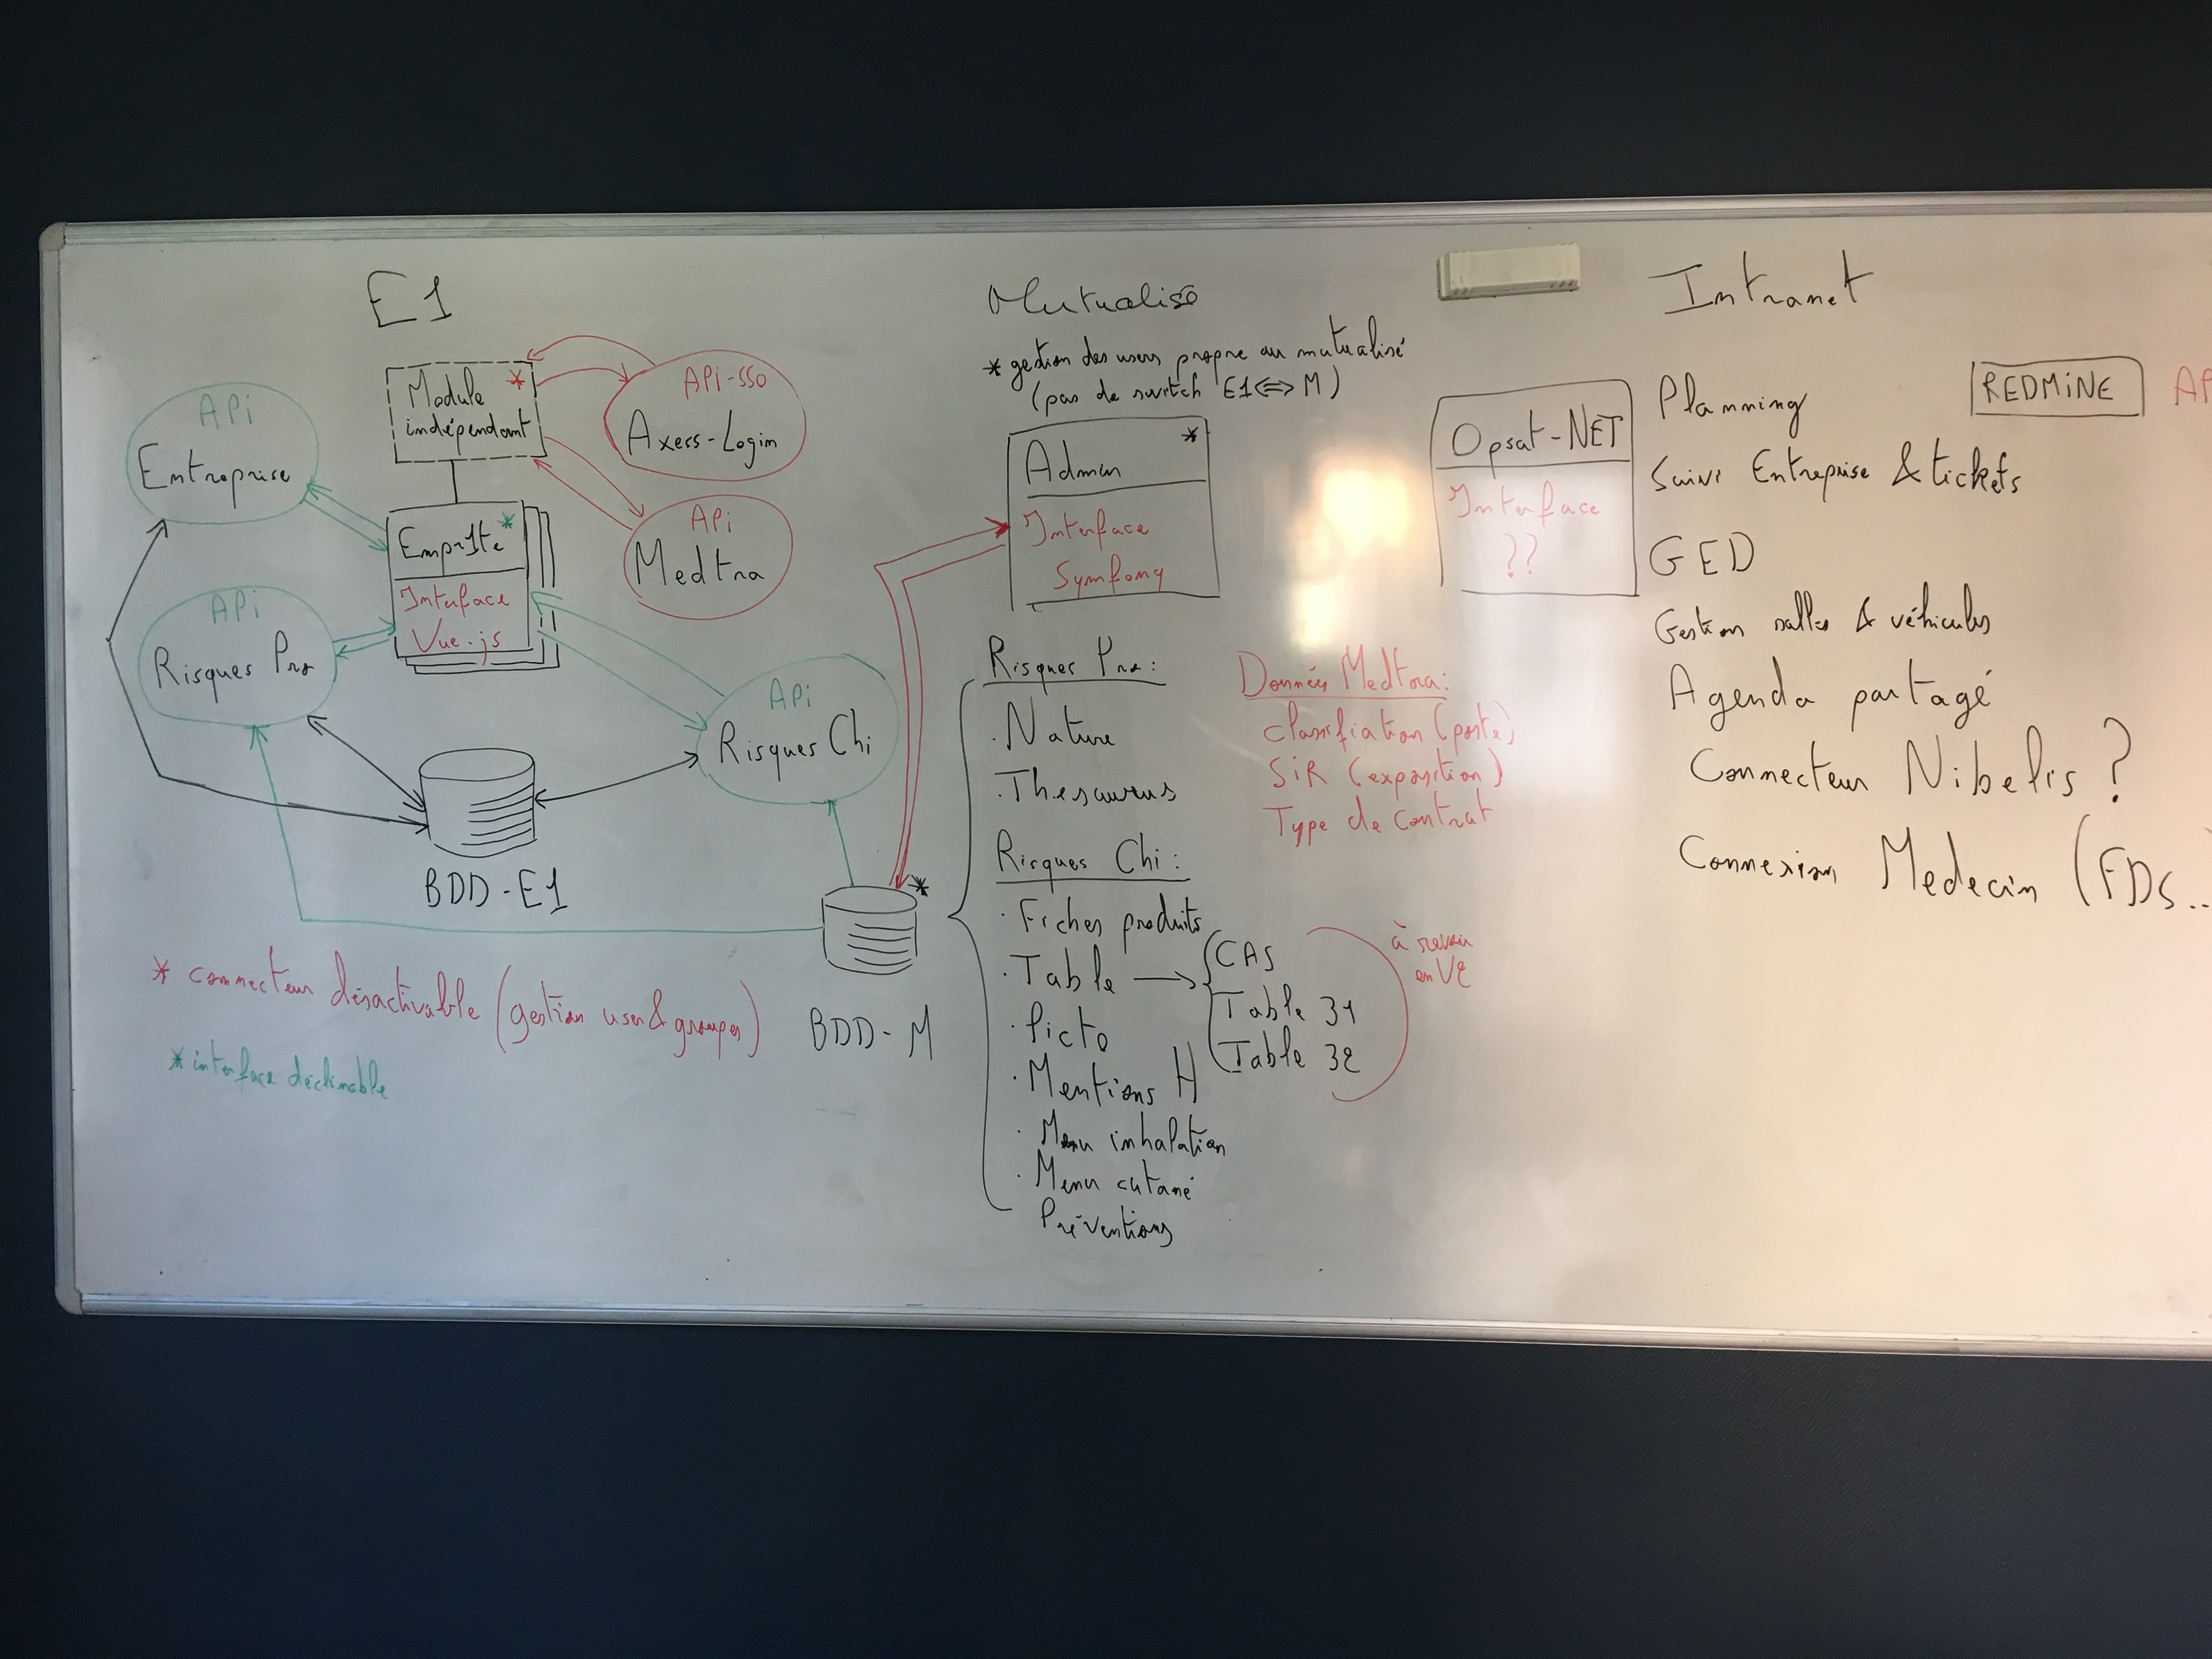 E1
Module *
indépendant
APi-SSO
Axess-Login
APi
Entreprise
APi
Medtra
Empr1te *
Interface
Vue.js
APi
Risques Pro
APi
Risques Chi
BDD-E1
BDD-M
*
* connecteur désactivable (gestion user & groupes)
* interface déclinable
Mutualisé
* gestion des users propre au mutualisé
(pas de switch E1 <=> M)
Admin *
Interface
Symfony
Risques Pro:
. Nature
. Thesaurus
Risques Chi:
. Fiches produits
. Table → CAS
Table 31
Table 32
. Picto
. Mentions H
. Menu inhalation
. Menu cutané
Préventions
à revoir
en V2
Données Medtra:
classifiation (poste)
SiR (exposition)
Type de contrat
Opsat-NET
Interface
??
Intranet
REDMiNE AP
Planning
Suivi Entreprise & tickets
GED
Gestion salles & véhicules
Agenda partagé
Connecteur Nibelis ?
Connexion Medecin (FDS...